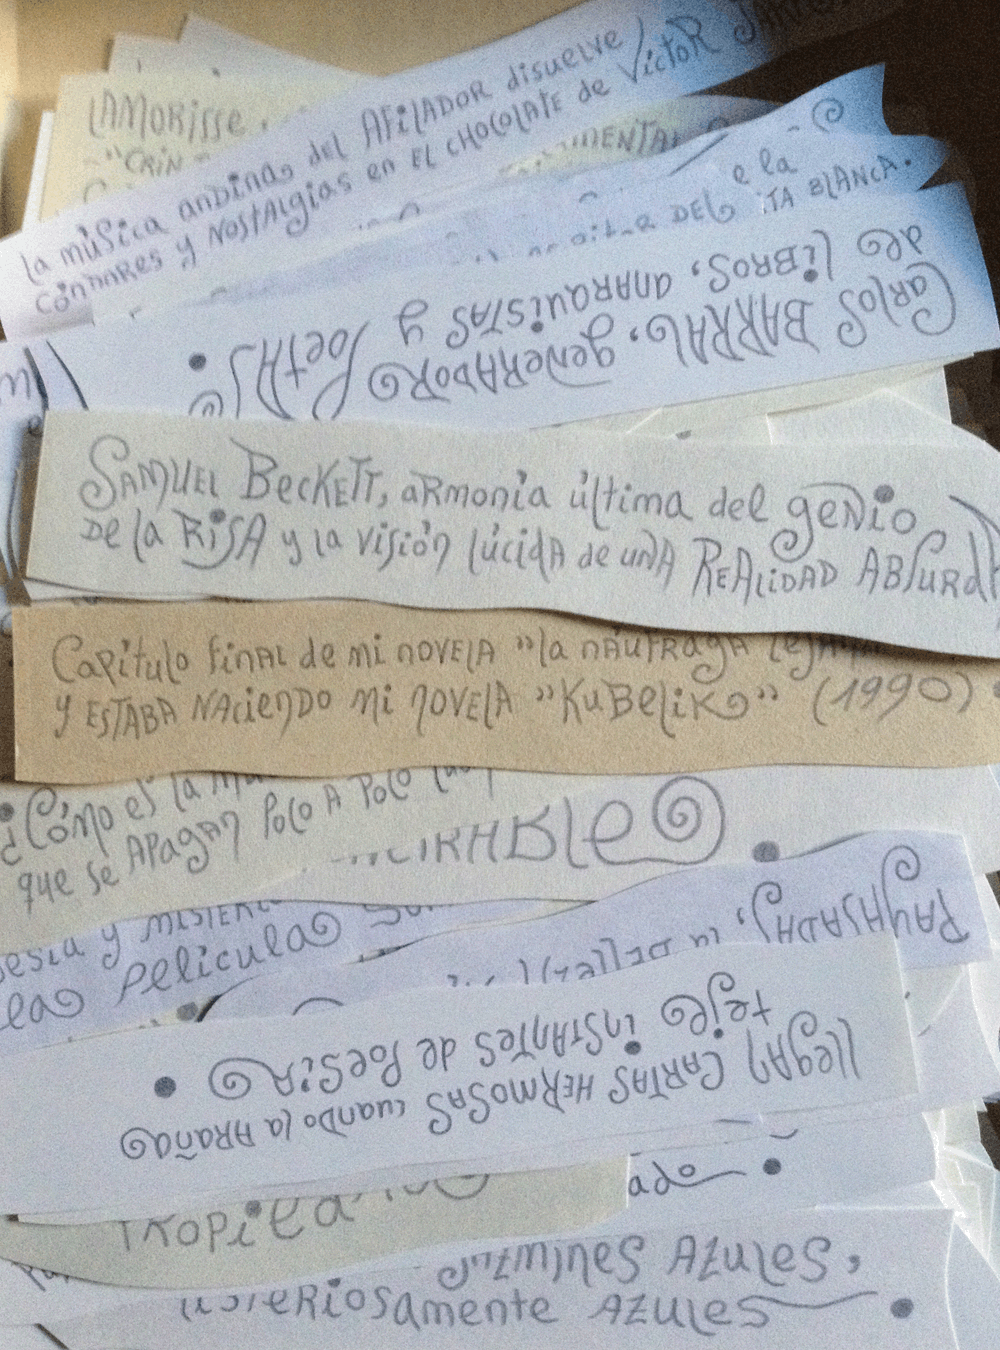 LAMORISSE
"CRIN
la música andina del AFILADOR disuelve
CONDORES y NOSTALGIAS en EL CHOCOLATE de VICTOR
MENTAL
e la
DEL ITA BLANCA.
CARLOS BARRAL, GENERADOR
de LIBROS, ANARQUISTAS y POETAS
SAMUEL BECKETT, ARMONIA última del genio
DE la RISA y la VISIÓN LÚCIDA de UNA REALIDAD ABSURDA
Capítulo FINAL de mi NOVELA "la NÁUFRAGA
y ESTABA NACIENDO mi NOVELA "KUBELIK" (1990)
¿Cómo es la
que se APAGAN POCO A POCO
RABLE
PAYASADAS,
y MISTERIO
PELICULAS
LLEGAN CARTAS HERMOSAS cuando la ARAÑA
teje INSTANTES de POESIA
TROPICAL
AZULES,
MISTERIOSAMENTE AZULES